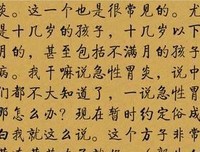 炎。这一个也是很常见的。尤
是十几岁的孩子，十几岁以下
月的，甚至包括不满月的孩子
病。我干嘛说急性胃炎，说中
们都不大知道了，一说急性胃
那怎么办？现在暂时约定俗成
白我就这么说。这个方子非常